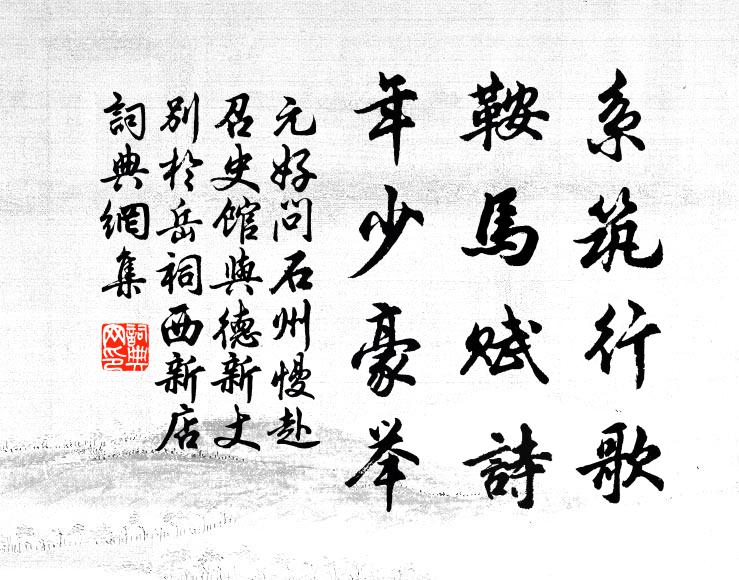 系筑行歌
鞍馬赋詩
年少豪举
元好问石州慢赴
召史館與德新丈
别於岳祠西新店
詞典網集
詞典
网印